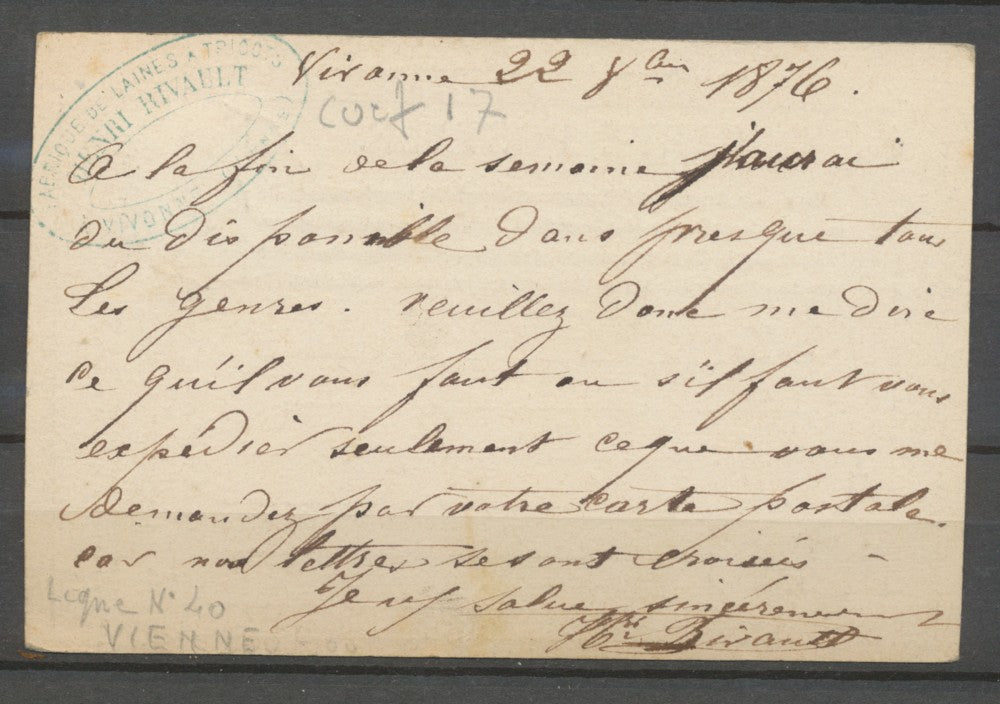 FABRIQUE DE LAINES A TRICOTS
HENRI RIVAULT
VIVONNE
Vivonne 22 8bre 1876.
coef 17
A la fin de la semaine j'aurai
du disponible dans presque tous
les genres. veuillez donc me dire
ce qu'il vous faut ou s'il faut vous
expedier seulement ce que vous me
demandez par votre carte postale.
car nos lettres se sont croisées -
Je vs salue sincèrement
Hri Rivault
Ligne N° 40
VIENNE